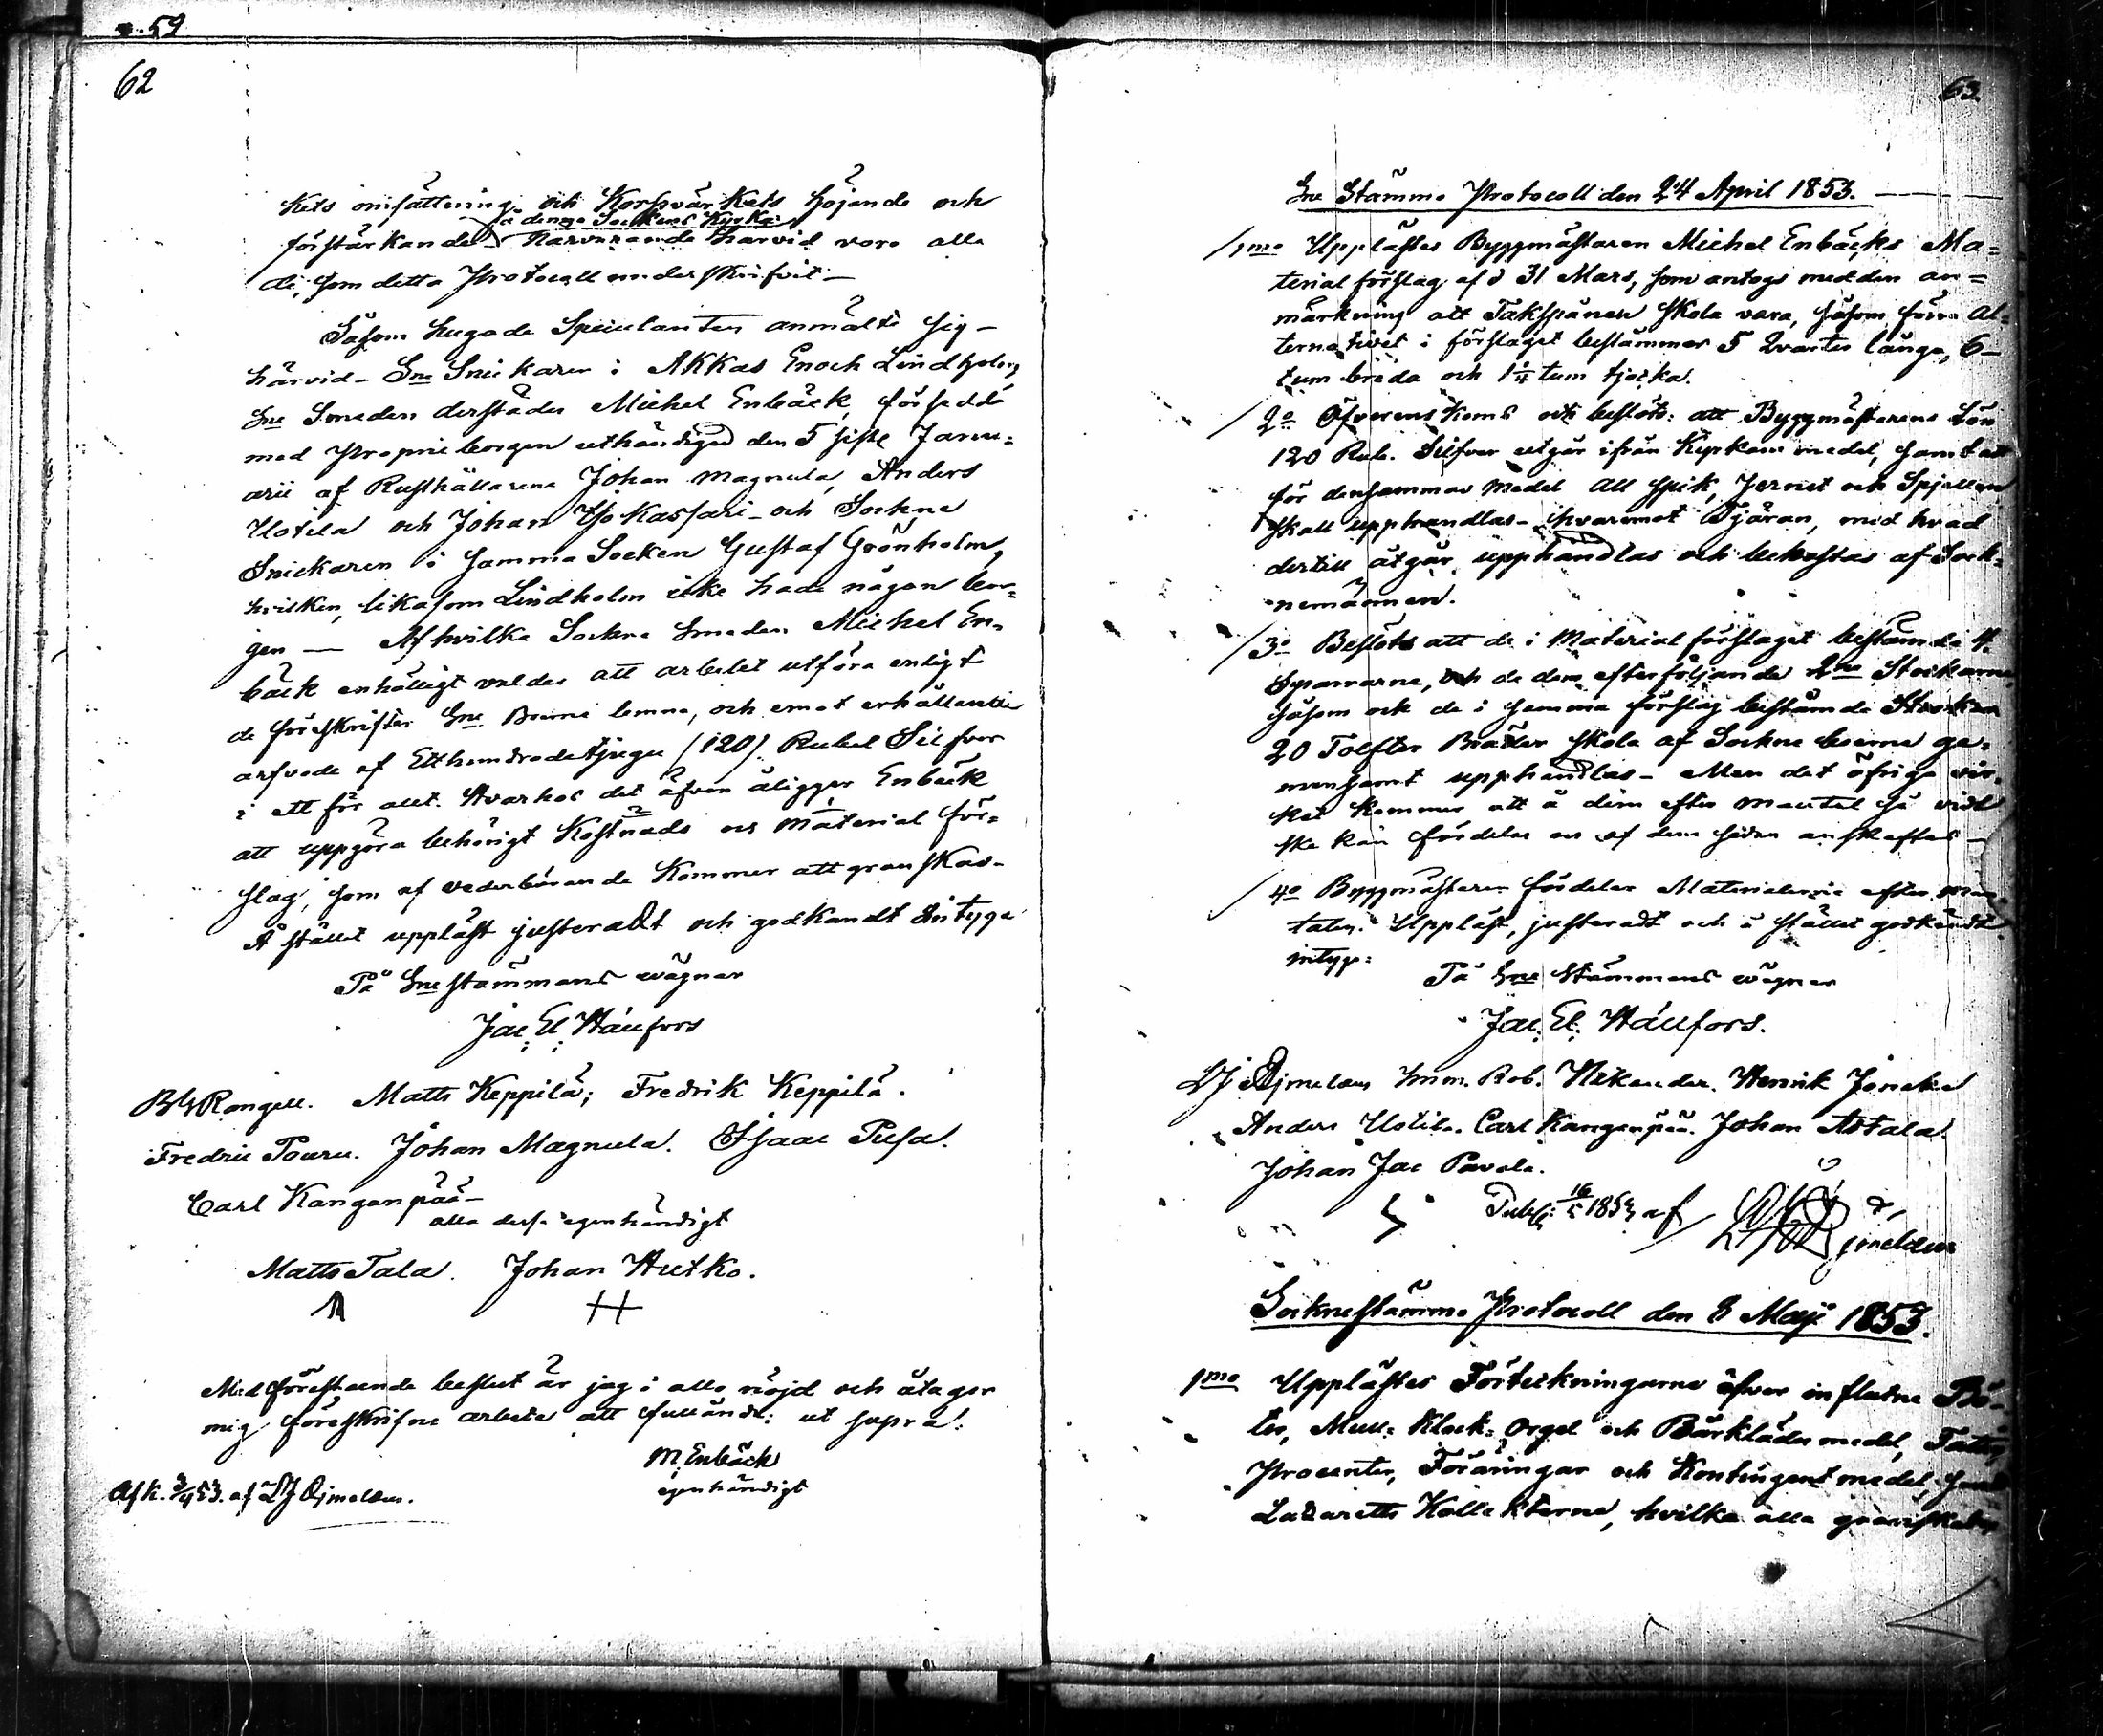 59
62
kets omsättning och Korsvärkets höjande och
å denna Sockens Kyrka
förstärkande Närvarande härvid voro alla
de, som detta Protocoll underskrifvit —
Såsom hugade Speculanter anmälte sig —
härvid — Sne Snickaren i Akkas Enoch Lindholm,
Sne Smeden derstädes Michel Enbäck, försedd
med Proprieborgen uthändigad den 5 siste Janu=
arii af Rusthållarena Johan Magnula, Anders
Uotila och Johan — och Sockne
Snickaren i samma Socken Gustaf Grönholm,
hvilken, likasom Lindholm icke hade någon bor=
gen — Af hvilka Sockne Smeden Michel En=
bäck enhälligt valdes att arbetet utföra enligt
de föreskrifter Sne Boerne lemna, och emot erhållande
arfvode af Etthundradetjugu (120) Rubel Silfver
i ett för allt. Hvarhos det äfven åligger Enbäck
att uppgöra behörigt Kostnads och Material för=
slag, som af vederbörande Kommer att granskas.
Å stället uppläst justeradt och godkändt Intyga
På Sne stämmans vägnar
Jac. El. Hällfors
Rongell. Matts Keppilä; Fredrik Keppilä.
Fredric Pouru. Johan Magnula. Isaac Pusa.
Carl Kanganpää —
alla desse egenhändigt
Matts Tala. Johan Hutko.
Med förestående beslut är jag i allo nöjd och åtager
mig föreskrifne arbete att fullända; ut supra.
M. Enbäck
egenhändigt
Afk. 3/4 53. af LJ Ojmelæus.
63.
Sne Stämmo Protocoll den 24 April 1853.
1mo Upplästes Byggmästaren Michel Enbäcks Ma=
terial förslag af d 31 Mars, som antogs med den an=
märkning att Takspånen skola vara, såsom förra Al=
ternativet i förslaget bestämmer 5 Qvarter långa, 6
tum breda och 1 1/4 tum tjocka.
2o Öfverenskoms och beslöts: att Byggmästarens Lön
120 Rub. Silfver utgår ifrån Kyrkans medel, samt att
för densammas medel all spik, Jernet och Spjällen
skall upphandlas — hvaremot Tjäran, med hvad
dertill åtgår, upphandlas och bekostas af Sock=
nemännen.
3o Beslöts att de i Material förslaget bestämde 4
Sparrarne, och de dem efterföljande 2ne Stockarne,
såsom ock de i samma förslag bestämde
20 Tolfter Bräder skola af Sockne boerne ge=
mensamt upphandlas — Men det öfriga vir=
ket kommer att å dem efter mantal så vidt
ske kan fördelas och af dem sedan anskaffas —
4o Byggmästaren fördelar Materialierne efter man
talen. Uppläst, justeradt och å stället godkändt
intyga:
På Sne Stämmans vägnar
Jac. El. Hällfors.
LJ Ojmelæus Imm. Rob. Nikander. Henrik Joneka
Anders Uotila. Carl Kanganpää. Johan Astala.
Johan Jac Pavola.
Publ: 16/5 1853 af LJ Ojmelæus
Sockne stämmo Protocoll den 8 Maji 1853.
1mo Upplästes Förteckningarne öfver influtne Bö=
ter, Mull= Klock= Orgel och Bårkläde medel, Fattig
Procenter, Föräringar och Kontingent medel, samt
Lazaretts Kollekterne, hvilka alla granskades